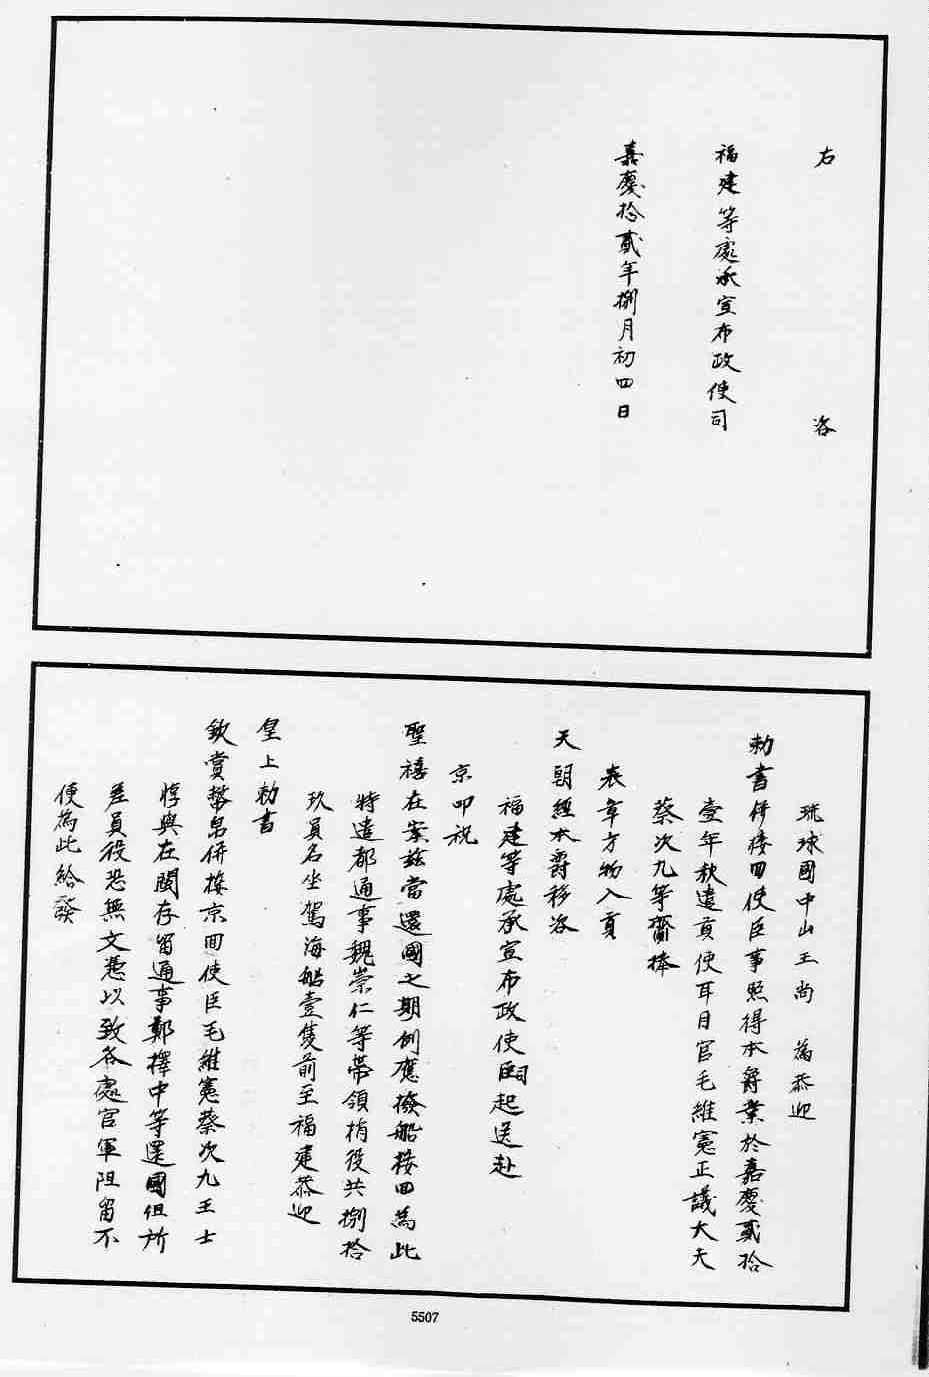 右 咨
福建等處承宣布政使司
嘉慶拾貳年捌月初四日
琉球國中山王尚 為恭迎
勅書併接回使臣事照得本爵業於嘉慶貳拾
壹年秋遣貢使耳目官毛維憲正議大夫
蔡次九等齎捧
表章方物入貢
天朝經本爵移咨
福建等處承宣布政使司起送赴
京叩祝
聖禧在案茲當還國之期例應撥船接回為此
特遣都通事魏崇仁等帶領梢役共捌拾
玖員名坐駕海船壹隻前至福建恭迎
皇上勅書
欽賞幣帛併接京回使臣毛維憲蔡次九王士
惇與在閩存留通事鄭擇中等還國但所
差員役恐無文憑以致各處官軍阻留不
便為此給發
5507